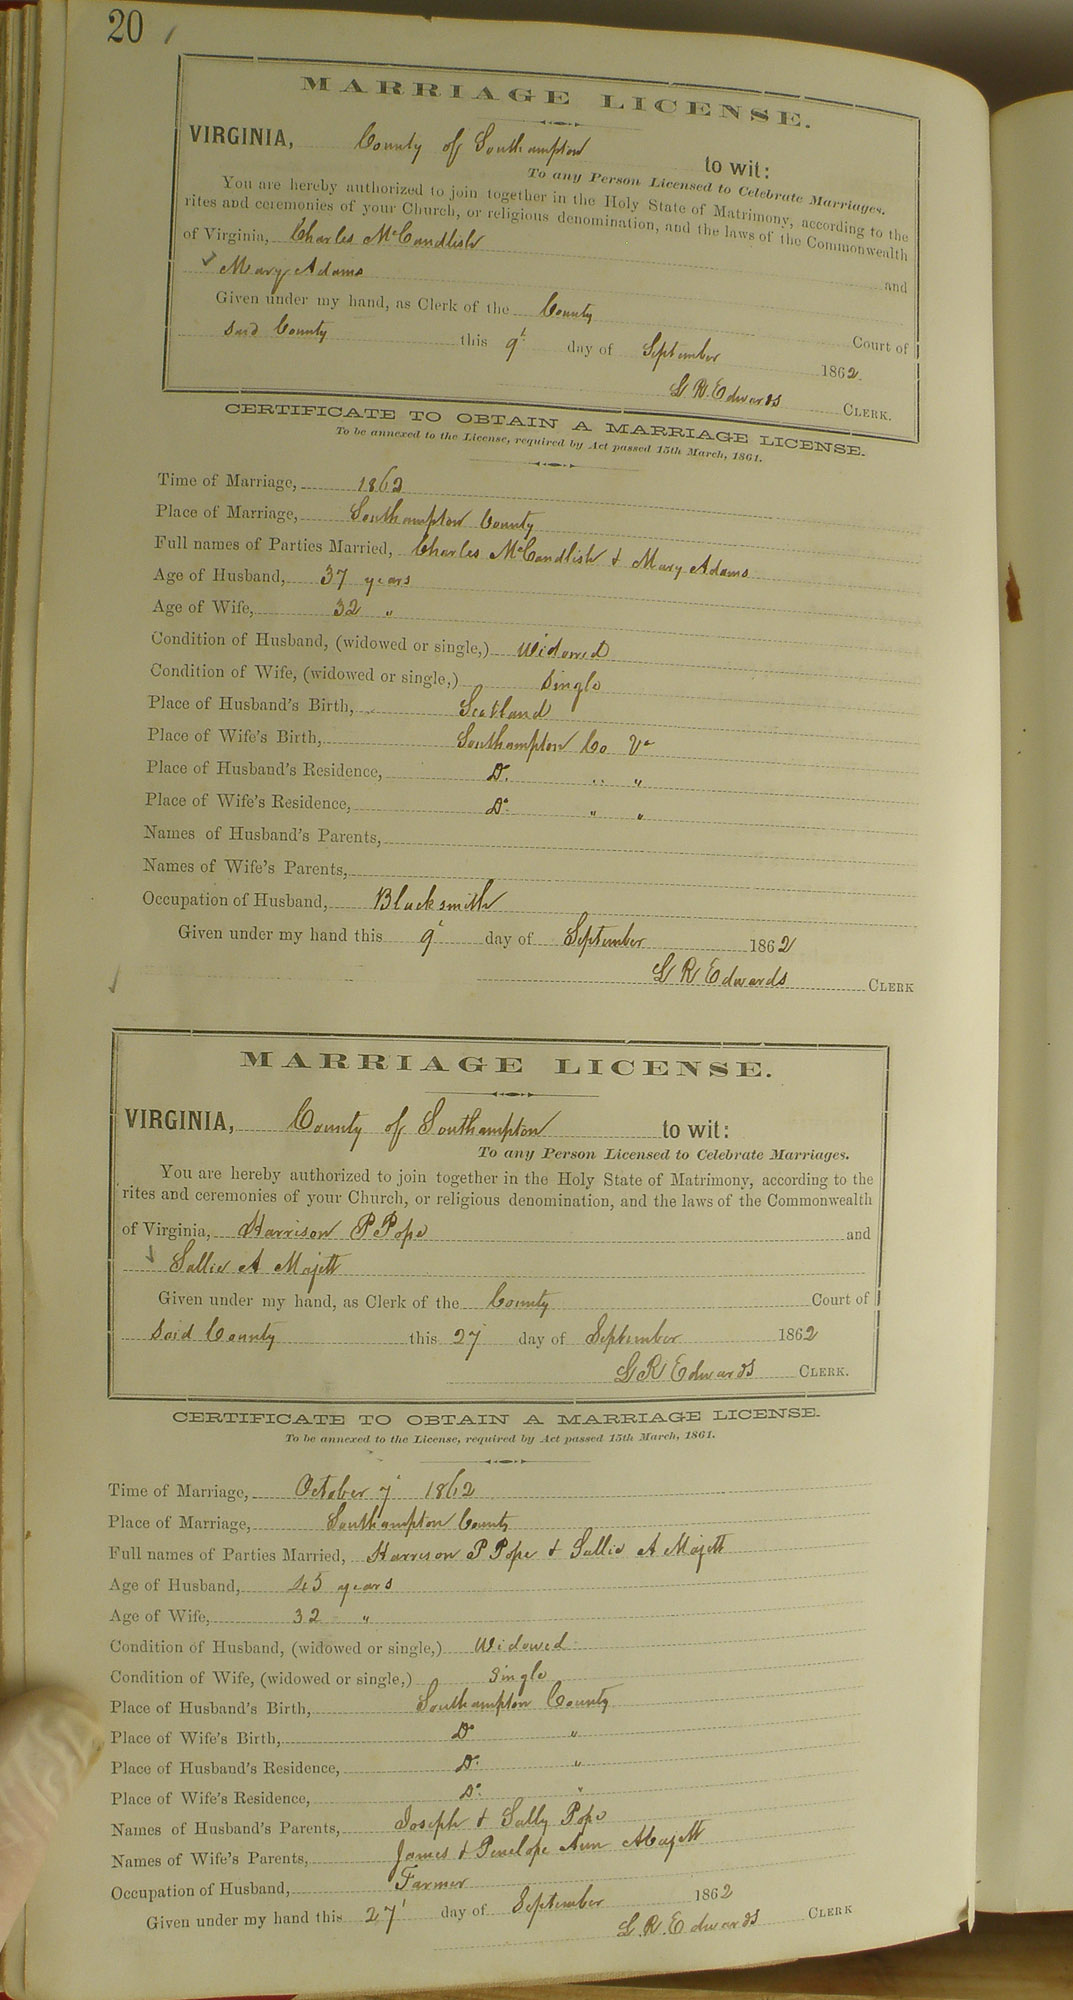 20
MARRIAGE LICENSE.
VIRGINIA, County of Southampton to wit:
To any Person Licensed to Celebrate Marriages.
You are hereby authorized to join together in the Holy State of Matrimony, according to the
rites and ceremonies of your Church, or religious denomination, and the laws of the Commonwealth
of Virginia, Charles McCandlish and
Mary Adams
Given under my hand, as Clerk of the County Court of
said County this 9t day of September 1862.
G. R. Edwards CLERK.
CERTIFICATE TO OBTAIN A MARRIAGE LICENSE.
To be annexed to the License, required by Act passed 15th March, 1861.
Time of Marriage, 1862
Place of Marriage, Southampton County
Full names of Parties Married, Charles McCandlish & Mary Adams
Age of Husband, 37 years
Age of Wife, 32 "
Condition of Husband, (widowed or single,) Widowed
Condition of Wife, (widowed or single,) Single
Place of Husband's Birth, Scotland
Place of Wife's Birth, Southampton Co Va
Place of Husband's Residence, Do. " "
Place of Wife's Residence, Do. " "
Names of Husband's Parents,
Names of Wife's Parents,
Occupation of Husband, Blacksmith
Given under my hand this 9t day of September 1862
G R Edwards CLERK
MARRIAGE LICENSE.
VIRGINIA, County of Southampton to wit:
To any Person Licensed to Celebrate Marriages.
You are hereby authorized to join together in the Holy State of Matrimony, according to the
rites and ceremonies of your Church, or religious denomination, and the laws of the Commonwealth
of Virginia, Harrison P Pope and
Sallie A Majett
Given under my hand, as Clerk of the County Court of
Said County this 27 day of September 1862
G R Edwards CLERK.
CERTIFICATE TO OBTAIN A MARRIAGE LICENSE.
To be annexed to the License, required by Act passed 15th March, 1861.
Time of Marriage, October 7 1862
Place of Marriage, Southampton County
Full names of Parties Married, Harrison P Pope & Sallie A Majett
Age of Husband, 45 years
Age of Wife, 32 "
Condition of Husband, (widowed or single,) Widowed
Condition of Wife, (widowed or single,) Single
Place of Husband's Birth, Southampton County
Place of Wife's Birth, Do "
Place of Husband's Residence, Do. "
Place of Wife's Residence, Do. "
Names of Husband's Parents, Joseph & Sally Pope
Names of Wife's Parents, James & Penelope Ann Majett
Occupation of Husband, Farmer
Given under my hand this 27 day of September 1862
G. R. Edwards CLERK